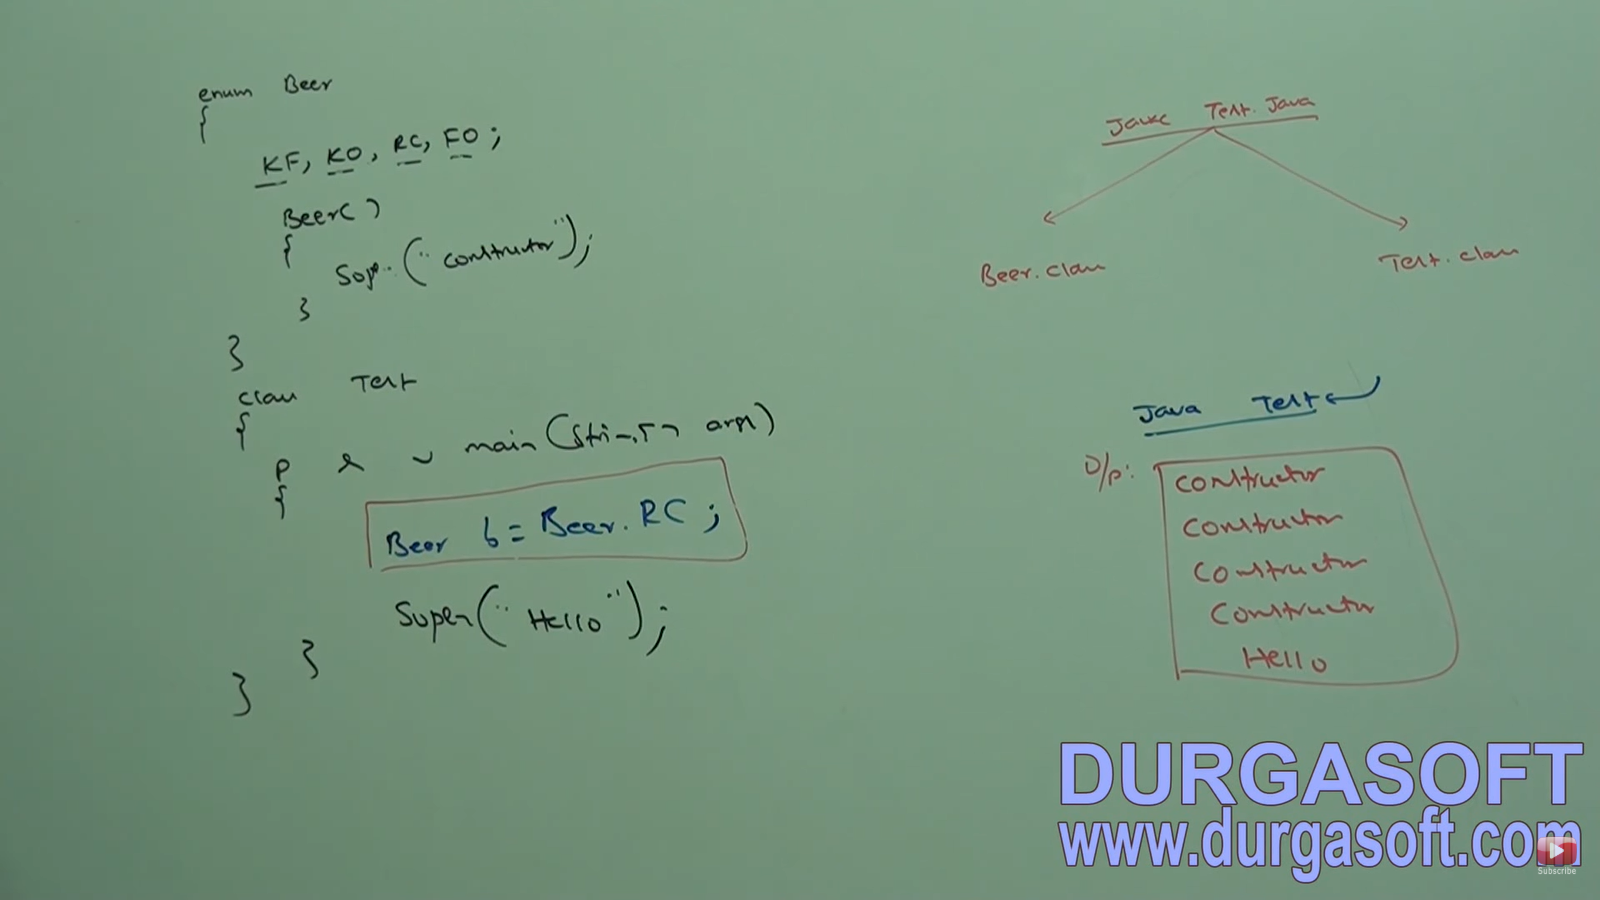 enum Beer
{
KF, KO, RC, FO ;
Beer( )
{
Sop.. (" constructor");
}
}
class Test
{
p s v main(String[] args)
{
Beer b = Beer. RC ;
Sopen(" Hello ");
}
}
Javac Test. Java
Beer.class Test.class
Java Test
O/p:
constructor
constructor
constructor
constructor
Hello
DURGASOFT
www.durgasoft.com
Subscribe